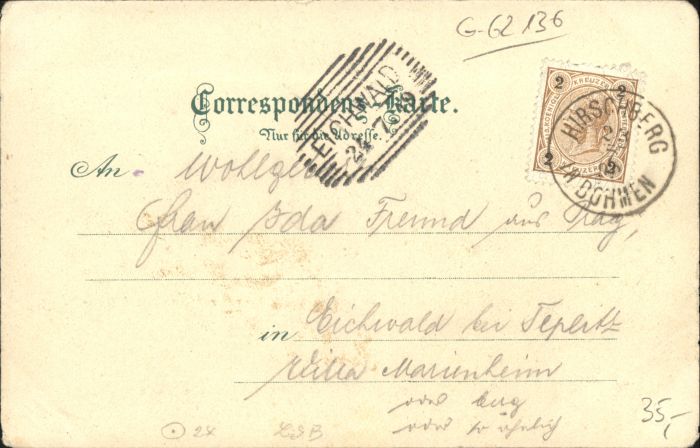 G-62 136
Correspondenz-Karte.
Nur für die Adresse.
EICHWALD
24 7
2 KREUZER 2
2 2
HIRSCHBERG
IN BÖHMEN
An Wohlgeb
Frau Ida Freund aus Prag,
in Eichwald bei Teplitz
Villa Marienheim
oder
oder so ähnlich
35,-
24